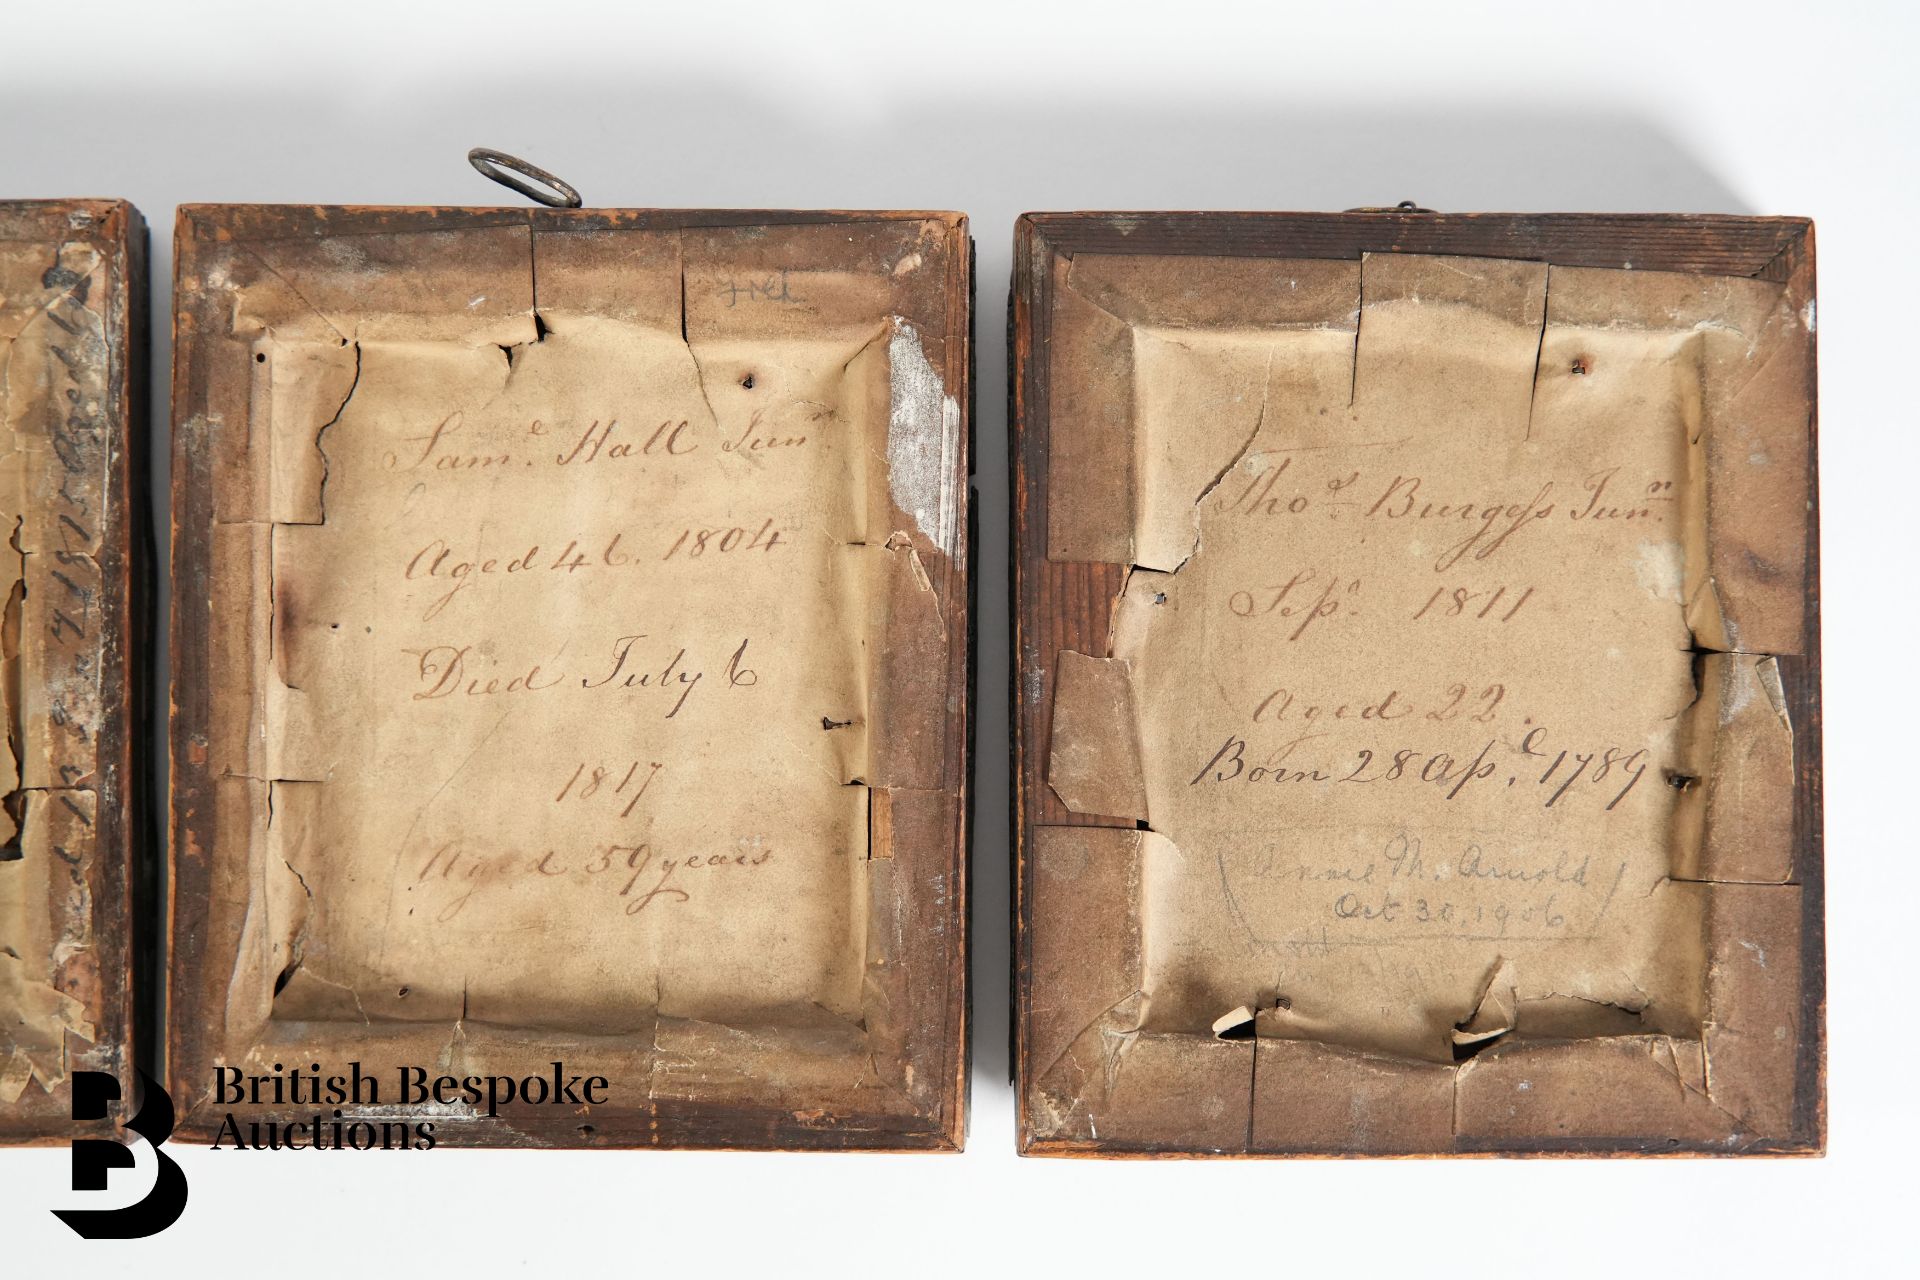 Sam.e Hall Junr.
Aged 46. 1804
Died July 6
1817
Aged 59 years
Thos. Burgess Junr.
Sepr. 1811
Aged 22.
Born 28 Ap.l 1789
Annie M. Arnold
Oct 30, 1906
British Bespoke
Auctions